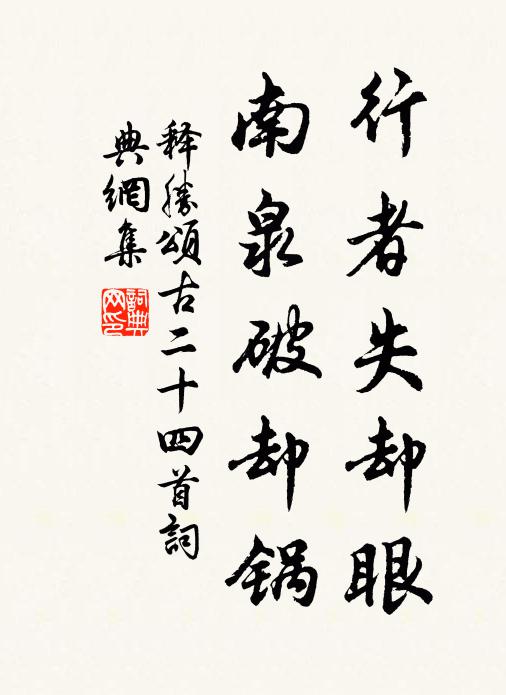 行者失却眼
南泉破却锅
释胜颂古二十四首詞
典網集
詞典网印